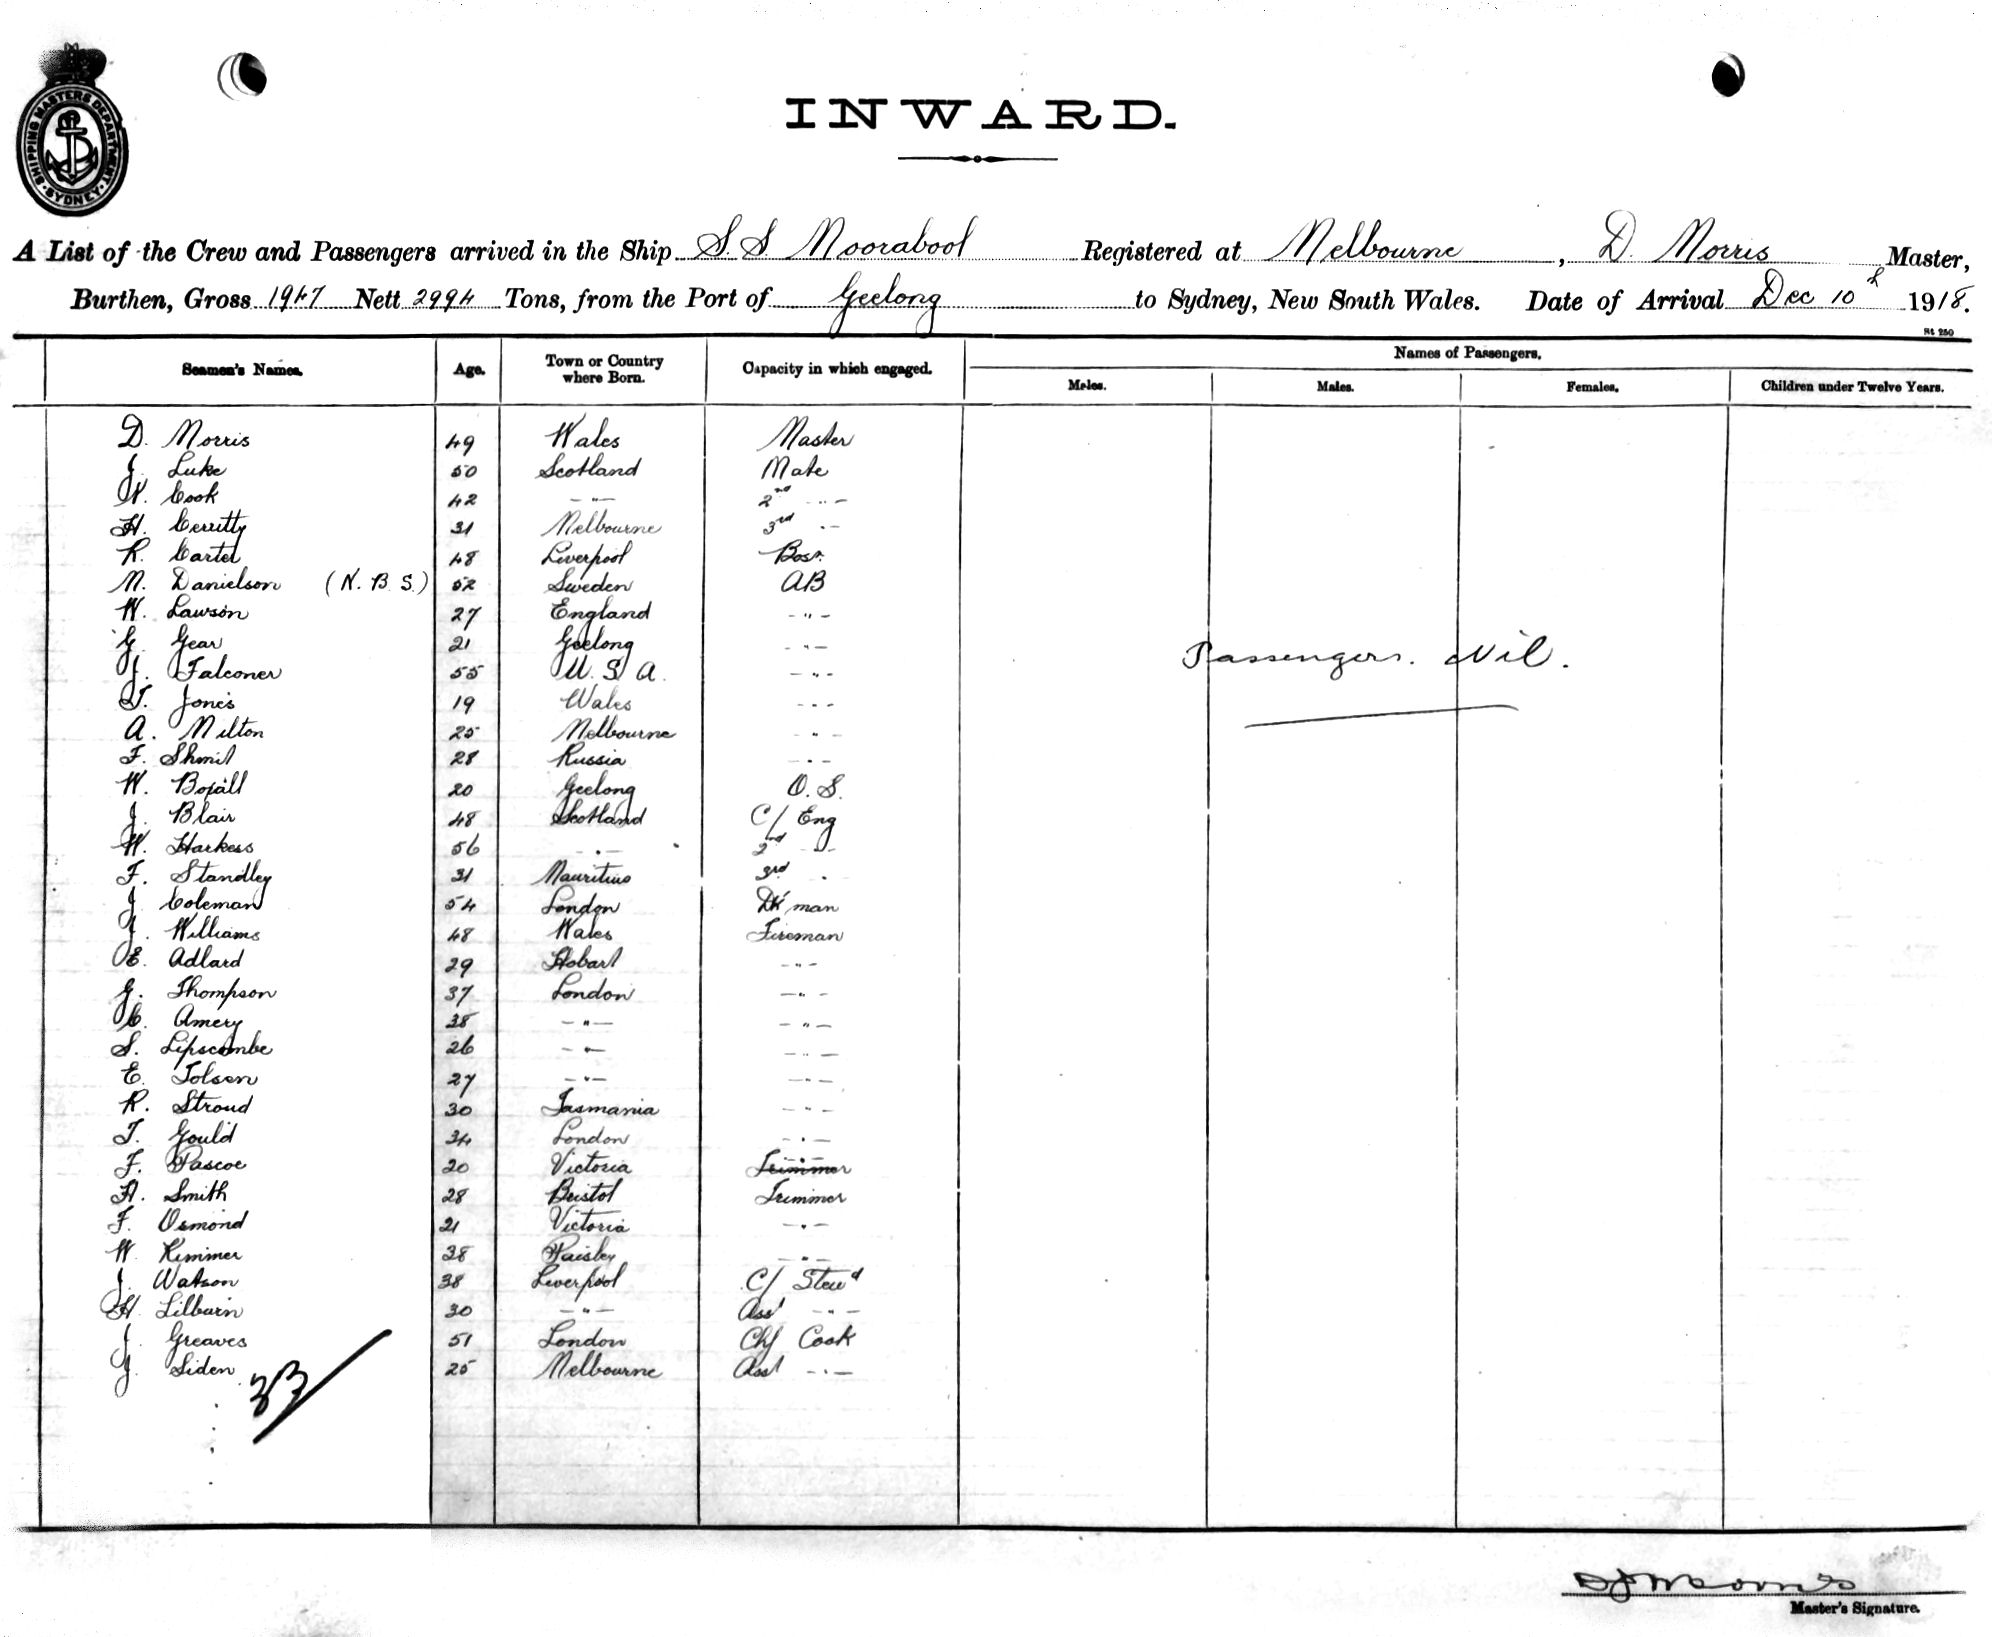 SHIPPING MASTERS DEPARTMENT
SYDNEY
INWARD.
A List of the Crew and Passengers arrived in the Ship S.S Moorabool Registered at Melbourne, D. Morris Master,
Burthen, Gross 1947 Nett 2994 Tons, from the Port of Geelong to Sydney, New South Wales. Date of Arrival Dec 10th 1918.
St 250
Seamen's Names. Age. Town or Country where Born. Capacity in which engaged. Names of Passengers.
Males. Males. Females. Children under Twelve Years.
D. Morris 49 Wales Master
J. Luke 50 Scotland Mate
W. Cook 42 - " - 2nd - " -
H. Cerutty 31 Melbourne 3rd " -
R. Carter 48 Liverpool Bosn.
M. Danielson (N.B.S.) 52 Sweden AB
W. Lawson 27 England - " -
G. Gear 21 Geelong - " -
J. Falconer 55 U.S.A. - " -
T. Jones 19 Wales - " -
A. Milton 25 Melbourne - " -
F. Shmit 28 Russia - " -
W. Boxall 20 Geelong O.S.
J. Blair 48 Scotland C/ Eng
W. Harkess 56 - " - 2nd - " -
F. Standley 31 Mauritius 3rd "
J. Coleman 54 London Dk man
J. Williams 48 Wales Fireman
E. Adlard 29 Hobart - " -
G. Thompson 37 London - " -
C. Amery 38 - " - - " -
S. Lipscombe 26 - " - - " -
E. Tolson 27 - " - - " -
R. Stroud 30 Tasmania - " -
T. Gould 34 London - " -
F. Pascoe 20 Victoria - " - Trimmer
H. Smith 28 Bristol Trimmer
F. Osmond 21 Victoria - " -
W. Kimmer 38 Paisley - " -
J. Watson 38 Liverpool C/ Stewd
H. Lilburn 30 - " - Asst - " -
J. Greaves 51 London Chf Cook
J. Siden 25 Melbourne Asst - " -
Passengers. Nil.
33
Master's Signature.